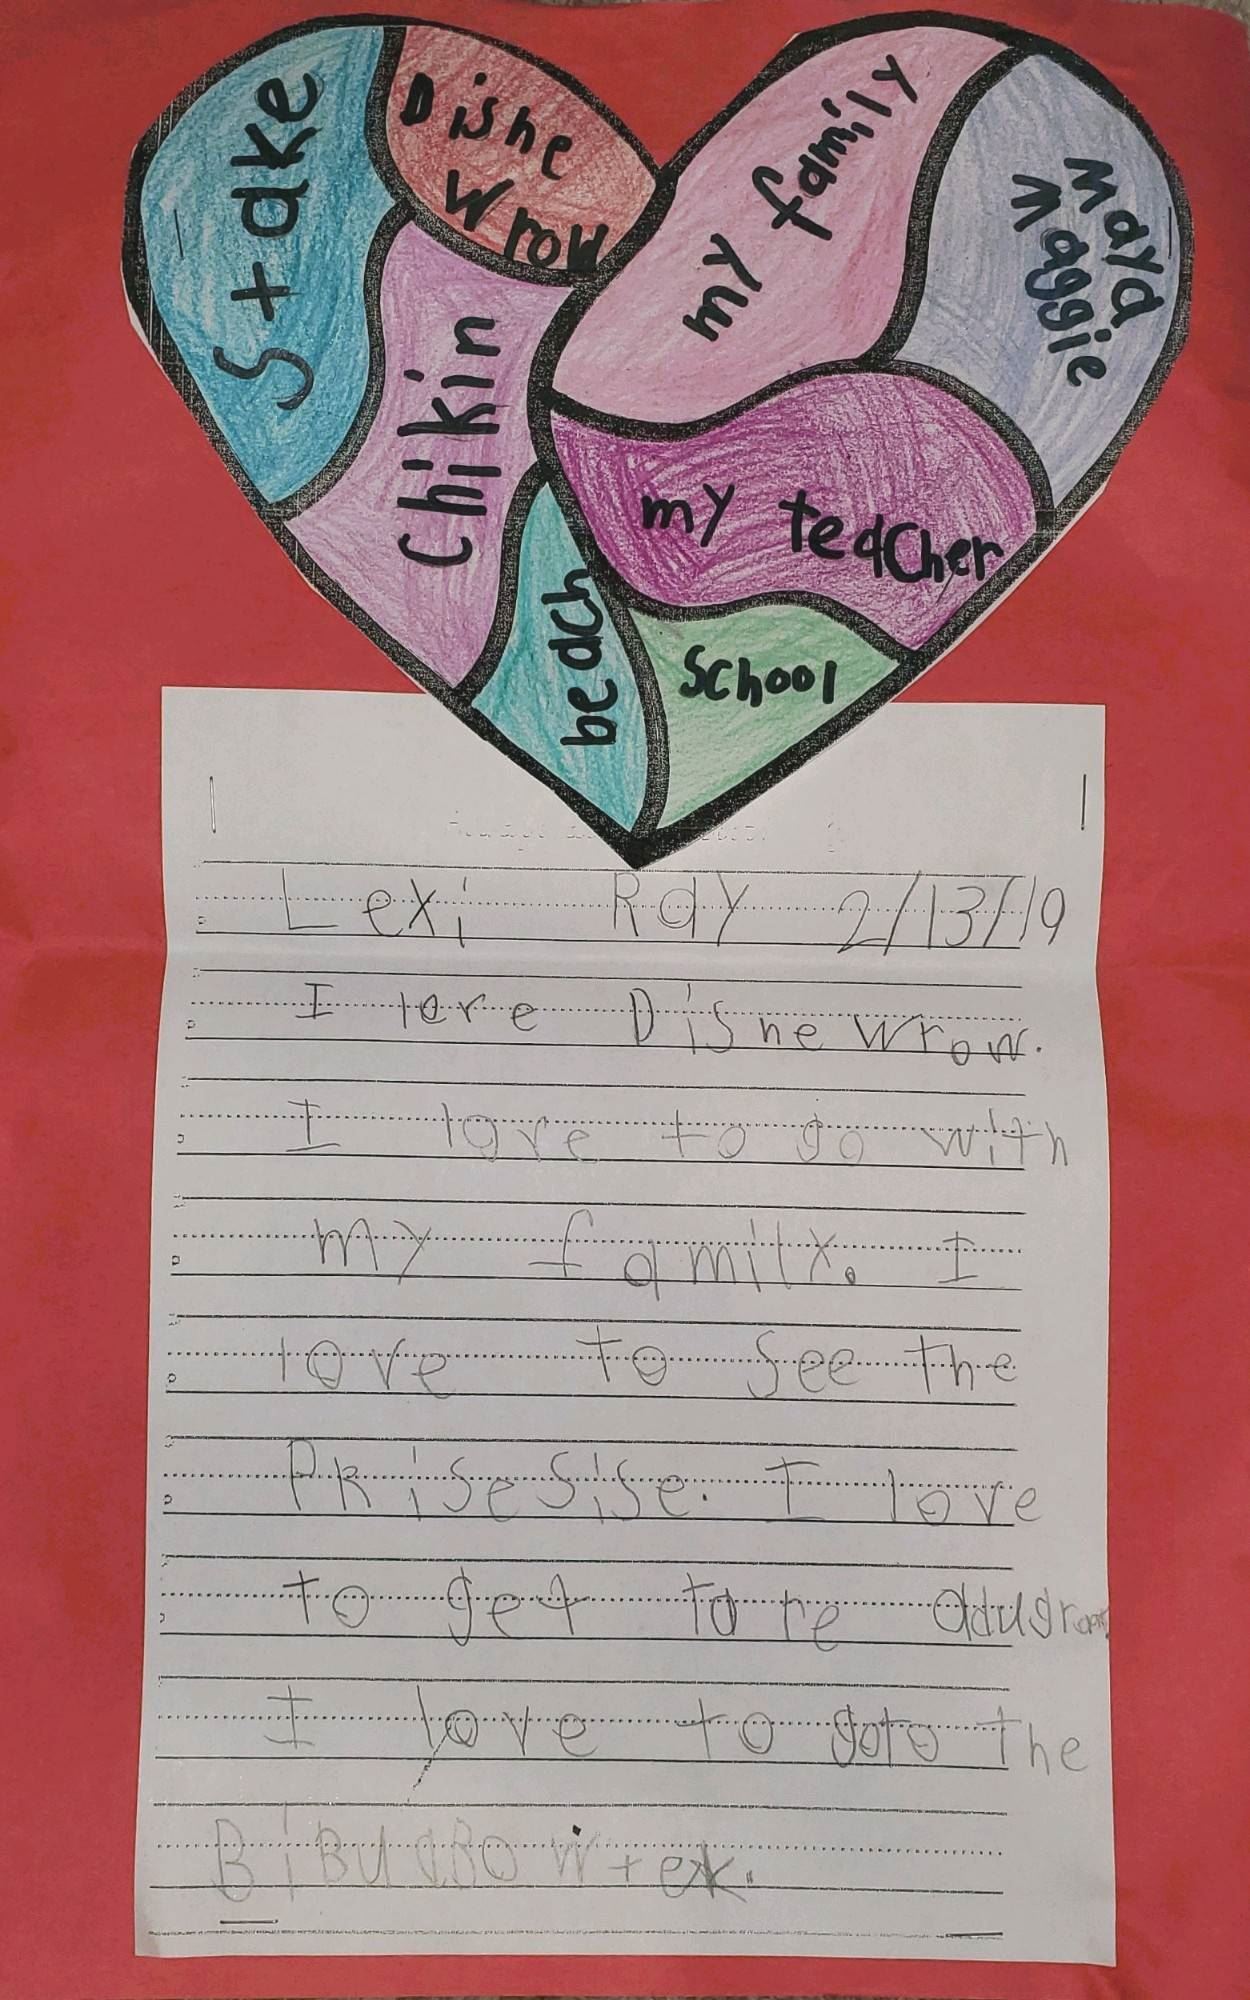 Stake
Disne
Wrow
my family
Maya
Maggie
Chikin
my teacher
beach
School
Lexi Ray 2/13/19
I love Disne Wrow.
I love to go with
my family. I
love to see the
PRiseSise. I love
to get
I love to goto the
BiBuaBOWtek.